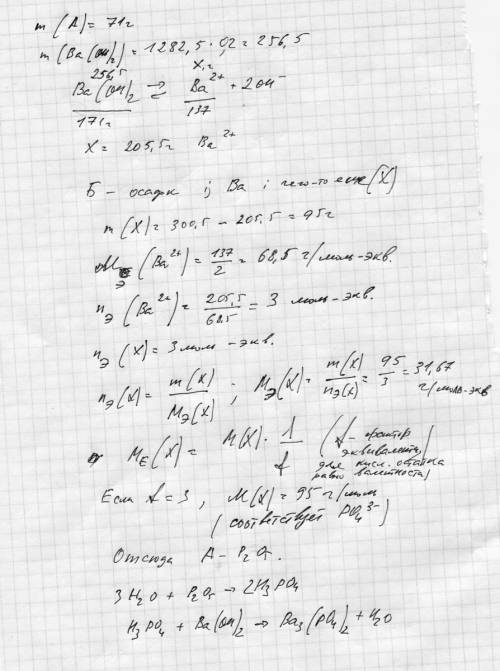 m(A) = 71г
m(Ba(OH)₂) = 1282,5 · 0,2 = 256,5
256,5 Xг
Ba(OH)₂ ⇄ Ba²⁺ + 2OH⁻
171г 137
X = 205,5г Ba²⁺
Б – осадок из Ba и чего-то еще (X)
m(X) = 300,5 – 205,5 = 95г
Mэ(Ba²⁺) = 137/2 = 68,5 г/моль-экв.
nэ(Ba²⁺) = 205,5/68,5 = 3 моль-экв.
nэ(X) = 3 моль-экв.
nэ(X) = m(X)/Mэ(X) ; Mэ(X) = m(X)/nэ(X) = 95/3 = 31,67 г/моль-экв
MЕ(X) = M(X) · 1/f (f – фактор эквивалентн.
для кисл. остатка
равно валентности)
Если f = 3, M(X) = 95 г/моль
(соответствует PO₄³⁻)
Отсюда A – P₂O₅.
3H₂O + P₂O₅ → 2H₃PO₄
H₃PO₄ + Ba(OH)₂ → Ba₃(PO₄)₂ + H₂O